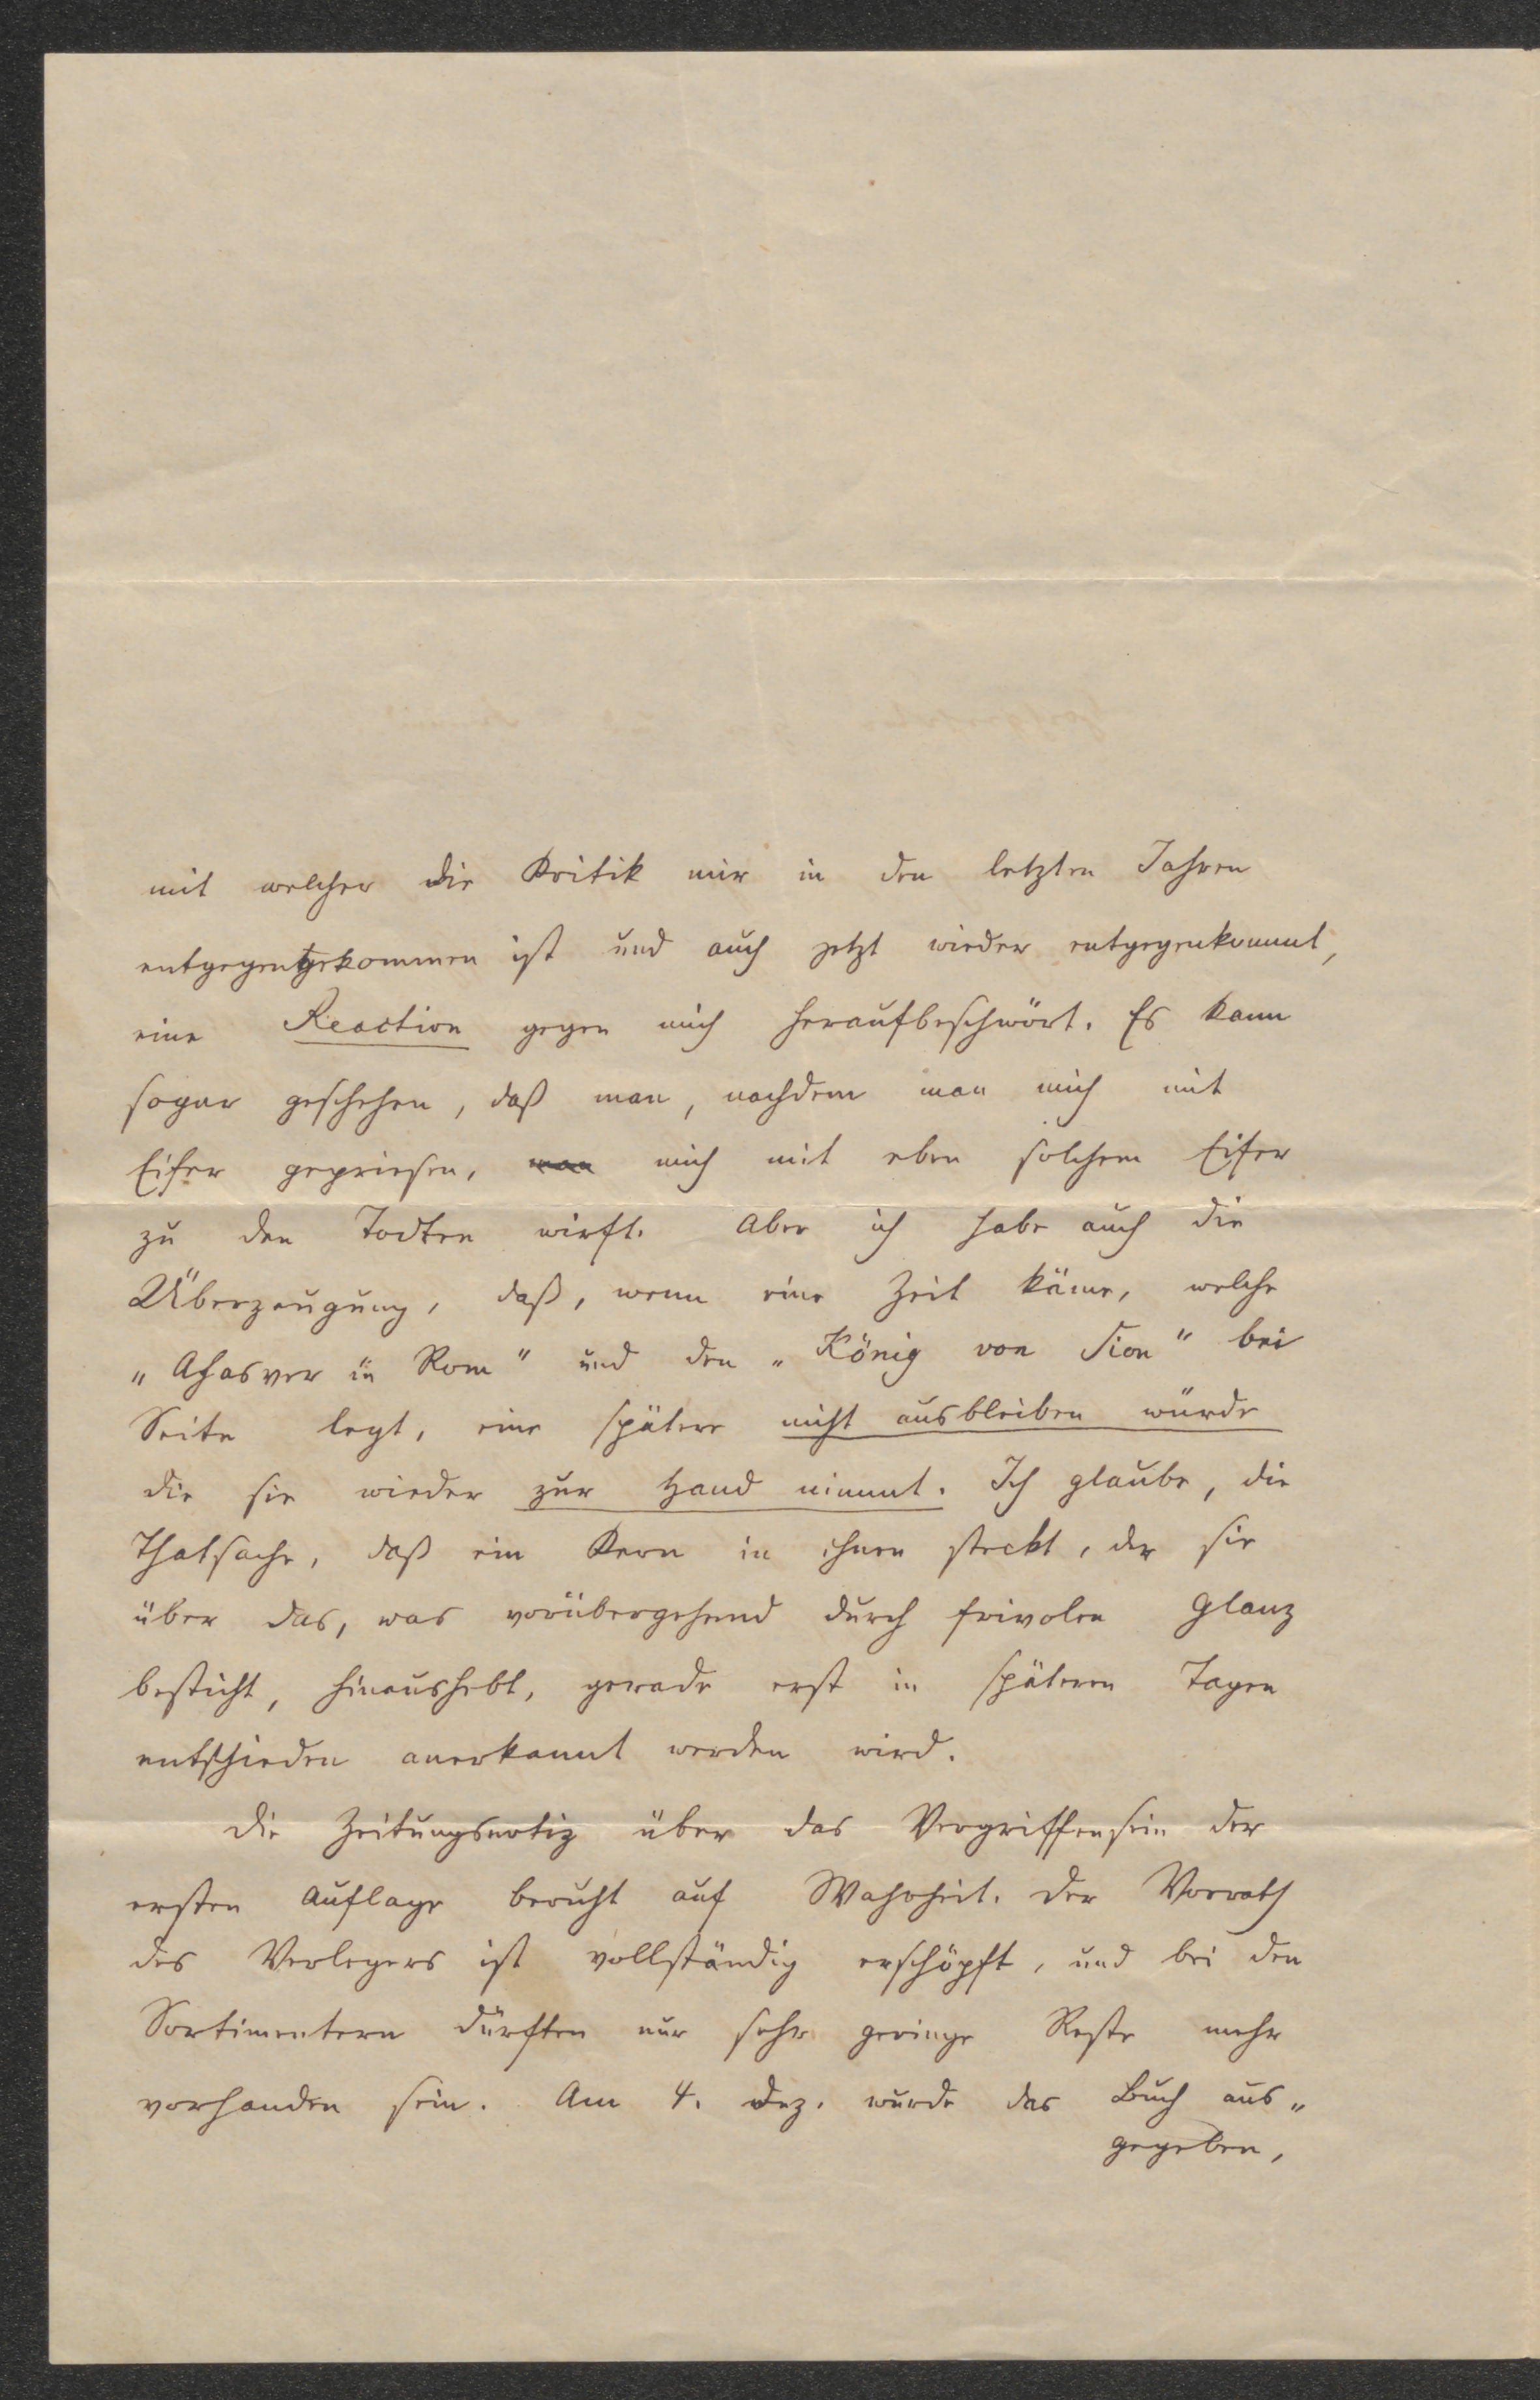 mit welcher die Kritik mir in den letzten Jahren
entgegengekommen ist und auch jetzt wieder entgegenkommt,
eine Reaction gegen mich heraufbeschwört. Es kann
sogar geschehen, daß man, nachdem man mich mit
Eifer gepriesen, man mich mit eben solchem Eifer
zu den Todten wirft. Aber ich habe auch die
Überzeugung, daß, wenn eine Zeit käme, welche
„Ahasver in Rom" und den „König von Sion" bei
Seite legt, eine spätere nicht ausbleiben würde
die sie wieder zur Hand nimmt. Ich glaube, die
Thatsache, daß ein Kern in ihnen steckt, der sie
über das, was vorübergehend durch frivolen Glanz
besticht, hinaushebt, gerade erst in späteren Tagen
entschieden anerkannt werden wird.
Die Zeitungsnotiz über das Vergriffensein der
ersten Auflage beruht auf Wahrheit. Der Vorrath
des Verlegers ist vollständig erschöpft, und bei den
Sortimentern dürften nur sehr geringe Reste mehr
vorhanden sein. Am 4. Dez. wurde das Buch aus„
gegeben,